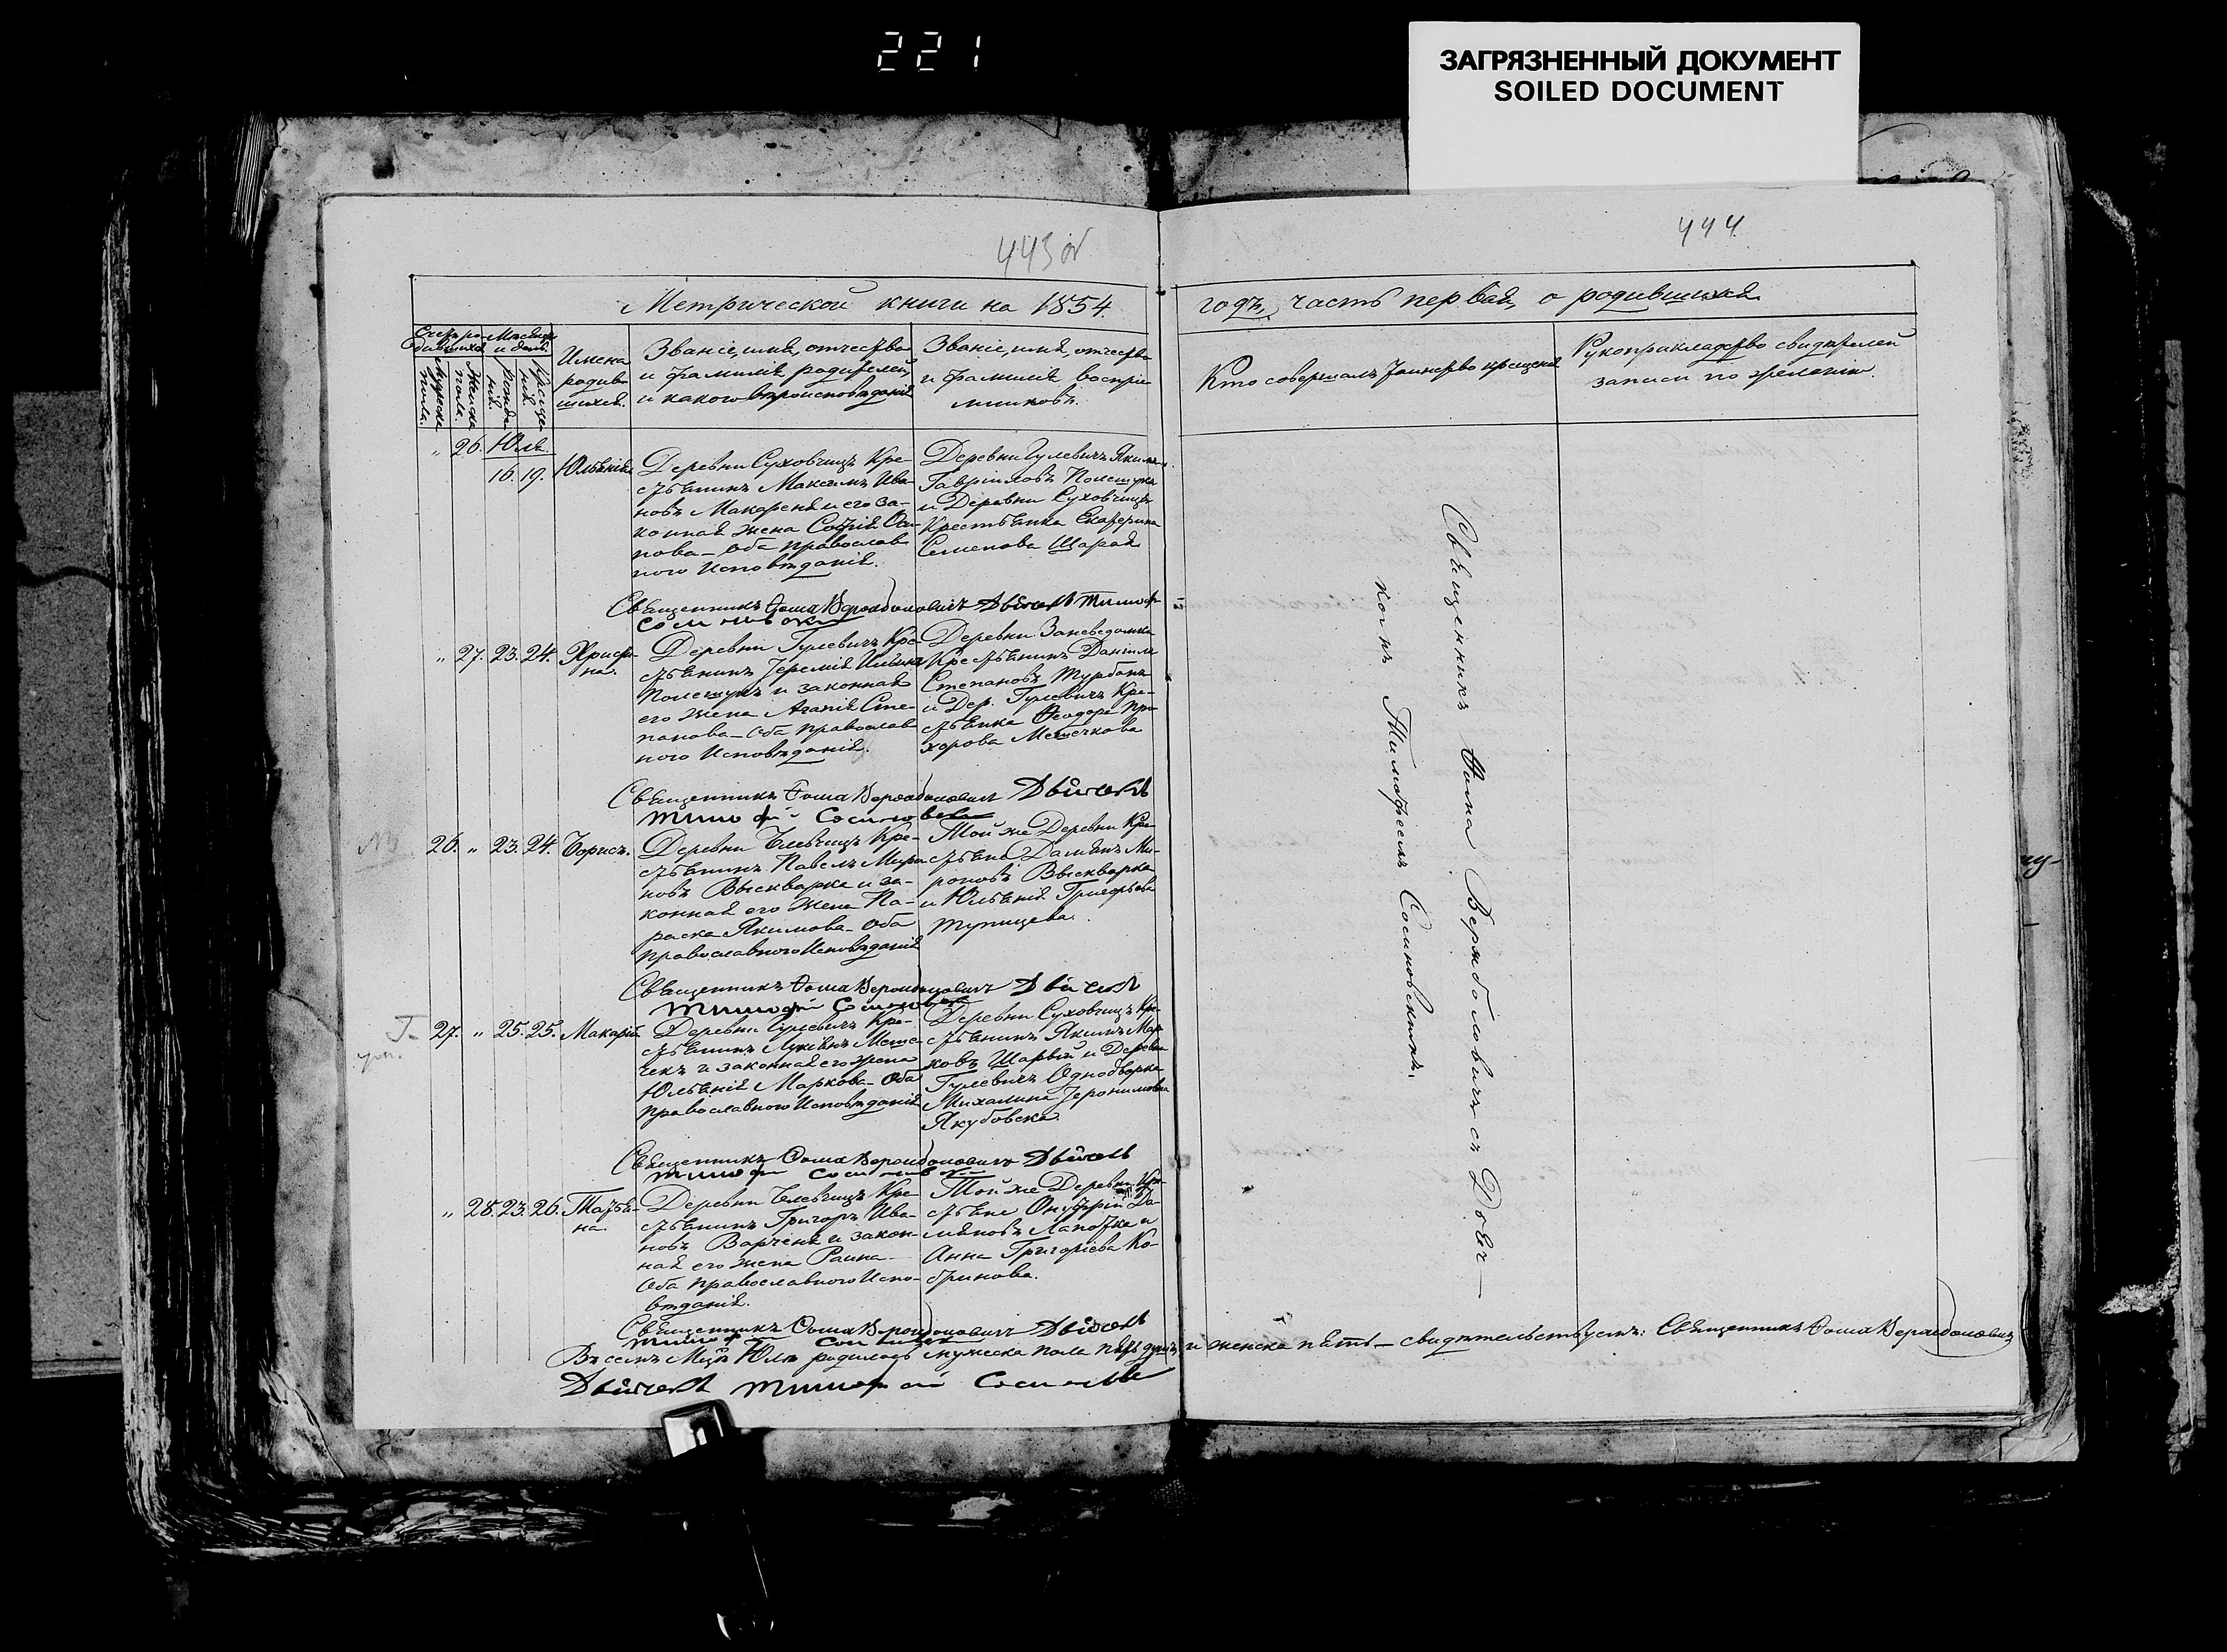 221
ЗАГРЯЗНЕННЫЙ ДОКУМЕНТ
SOILED DOCUMENT
443 об
444.
Метрической книги на 1854.
годъ, часть первая, о родившихся.
Счетъ родившихся
Мужеска пола.
Женска пола.
Месяцъ и день.
рожденія.
крещенія.
Имена
родив-
шихся.
Званіе, имя, отчество
и фамилія родителей,
и какого вѣроисповѣданія
Званіе, имя, отчество
и фамилія воспріе-
мниковъ.
Кто совершалъ таинство крещенія
Рукоприкладство свидѣтелей
записи по желанію.
„ 26. Юля.
16. 19. Юльянія.
Деревни Суховчицъ Кре-
стьянинъ Максимъ Ива-
новъ Макареня и его за-
конная жена Софія Оси-
пова – оба православ
ного Исповѣданія.
Деревни Гулевичъ Якимъ
Гавріиловъ Полещукъ
и Деревни Суховчицъ
Крестьянка Екатерина
Семенова Шарая
Священникъ Фома Вержболовичъ Дьячекъ Тимоф
„ 27. 23. 24. Христи-
на.
Деревни Гулевичъ Кре-
стьянинъ Іеремія
Полещукъ и законная
его жена Агапія Сте-
панова – оба православ
ного Исповѣданія.
Деревни
Крестьянинъ Даніилъ
Степановъ Турбанъ
и Дер. Гулевичъ Кре-
стьянка Ѳеодора Про-
хорова Метечкова
Священникъ Фома Вержболовичъ Дьячекъ
Тимофей
26. „ 23. 24. Борисъ.
Деревни Кре-
стьянинъ Павелъ Миро
новъ Выскварка и за-
конная его жена Па-
раска Якимова – оба
православного Исповѣданія
Той же Деревни Кре-
стьяне Дамянъ Ми-
роновъ Выскварка
и Юльянія Григорьева
Тупицева.
Священникъ Фома Вержболовичъ Дьячекъ
Тимофей
27. „ 25. 25. Макарій
Деревни Гулевичъ Кре-
стьянинъ Лукіянъ Мете-
чекъ и законная его жена
Юльянія Маркова – оба
православного Исповѣданія
Деревни Суховчицъ Кре-
стьянинъ Якимъ Мар
ковъ Шарый и Деревни
Гулевичъ Однодворка
Михалина Іеронимова
Якубовска.
Священникъ Фома Вержболовичъ Дьячекъ
Тимофей
„ 28. 23. 26. Татья-
на.
Деревни Кре-
стьянинъ Григоръ Ива-
новъ Варченя и закон-
ная его жена Раина –
Оба православного Испо-
вѣданія.
Той же Деревни Кре-
стьяне Онуфрій Да-
мяновъ Лапотка и
Анна Григоріева Ко-
бринова.
Священникъ Фома Вержболовичъ Дьячекъ
Тимофей
Въ семъ Мцѣ Юлѣ родилось мужеска пола пять душъ, и женска пять – свидѣтельствуемъ: Священникъ Фома Вержболовичъ
Дьячекъ Тимофей
Священникъ Фома Вержболовичъ съ Дьяч-
комъ Тимофеемъ Сосиновскимъ.